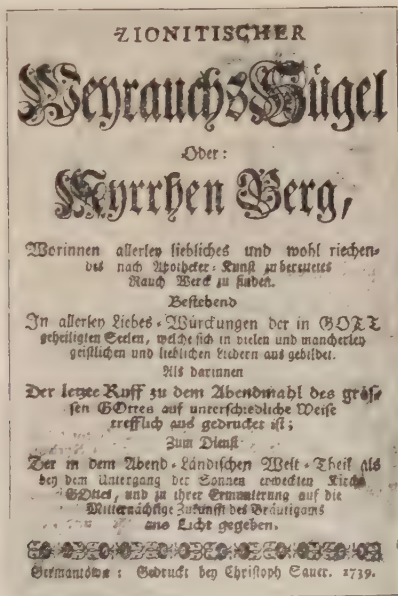 ZIONITISCHER
WeyrauchsHügel
Oder:
Myrrhen Berg,
Worinnen allerley liebliches und wohl riechen-
des nach Apotheker-Kunst zu bereitetes
Rauch-Werck zu finden.
Bestehend
In allerley Liebes-Würckungen der in GOTT
geheiligten Seelen, welche sich in vielen und mancherley
geistlichen und lieblichen Liedern aus gebildet.
Als darinnen
Der letzte Ruff zu dem Abendmahl des gros-
sen GOttes auf unterschiedliche Weise
trefflich aus gedrucket ist;
Zum Dienst
Der in dem Abend-Ländischen Welt-Theil als
bey dem Untergang der Sonnen erweckten Kirche
GOttes, und zu ihrer Ermunterung auf die
Mitternächtige Zukunfft des Bräutigams
ans Licht gegeben.
Germantown: Gedruckt bey Christoph Sauer. 1739.